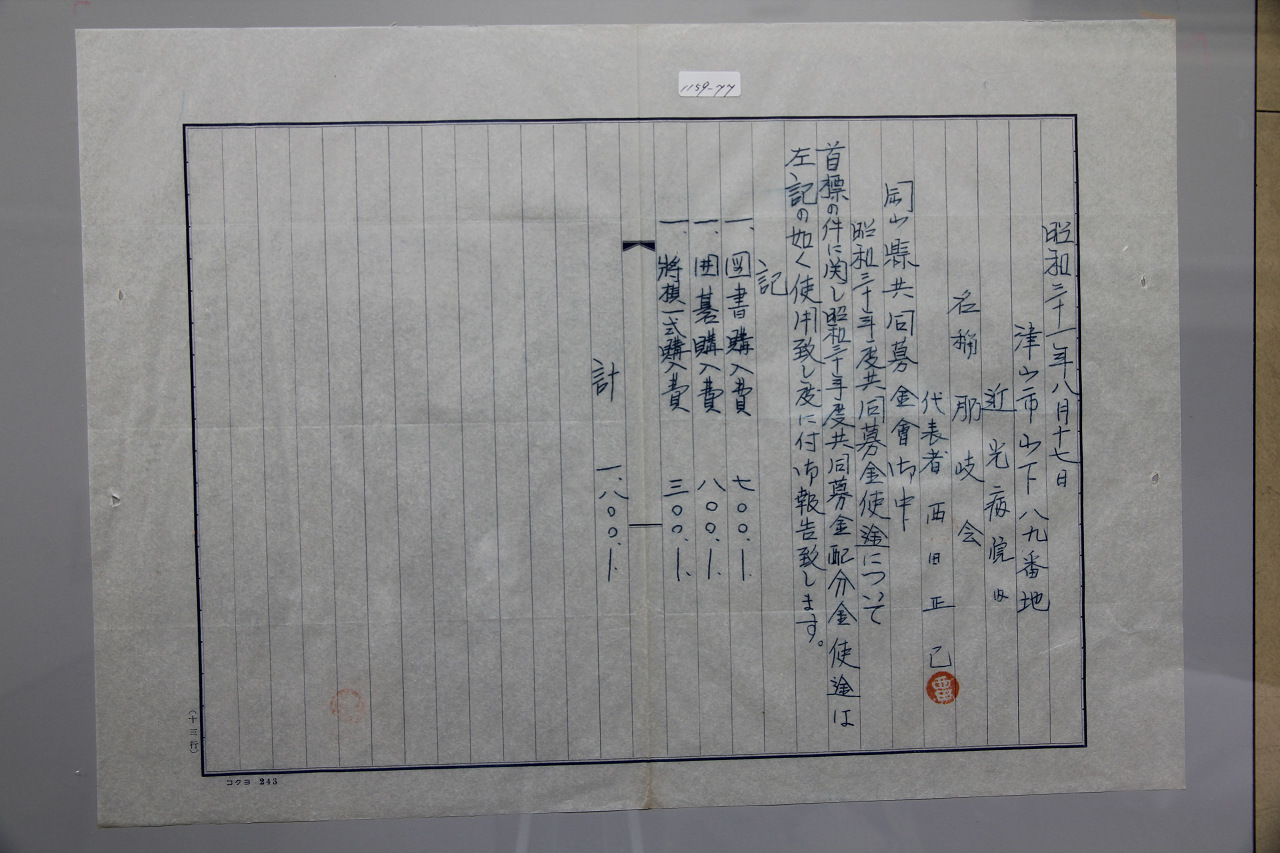 1159-77
昭和三十一年八月十七日
津山市山下八九番地
近光病院内
名称 那岐会
代表者 西田正己
岡山縣共同募金會御中
昭和三十年度共同募金使途について
首標の件に関し昭和三十年度共同募金配分金使途は
左記の如く使用致し度に付御報告致します。
記
一、図書購入費 七〇〇.―.
一、囲碁購入費 八〇〇.―.
一、将棋一式購入費 三〇〇.―.
計 一、八〇〇.―.
(十三行)
コクヨ 243